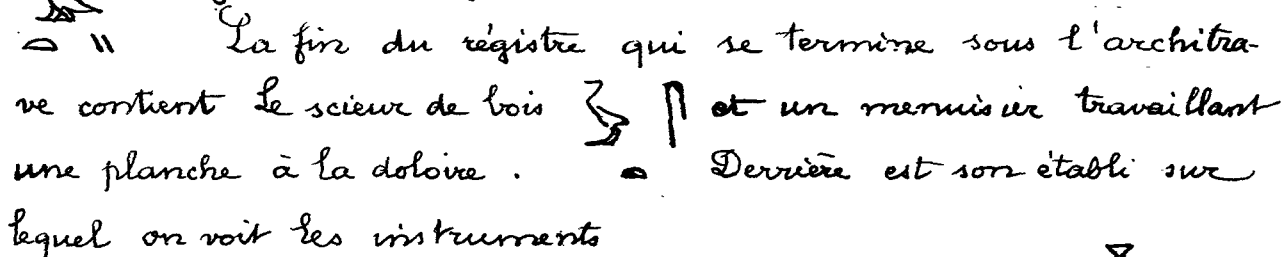 La fin du régistre qui se termine sous l'architra-
ve contient le scieur de bois et un menuisier travaillant
une planche à la doloire. Derrière est son établi sur
lequel on voit les instruments